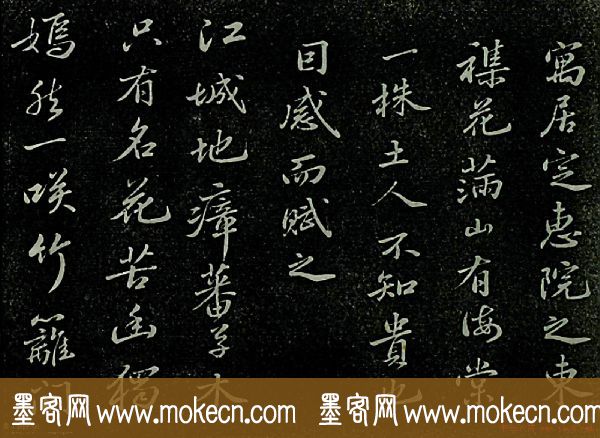 寓居定惠院之東
襍花滿山有海棠
一株土人不知貴也
因感而賦之
江城地瘴蕃草木
只有名花苦幽獨
嫣然一笑竹籬間
墨客网 www.mokecn.com 墨客网 www.mokecn.com